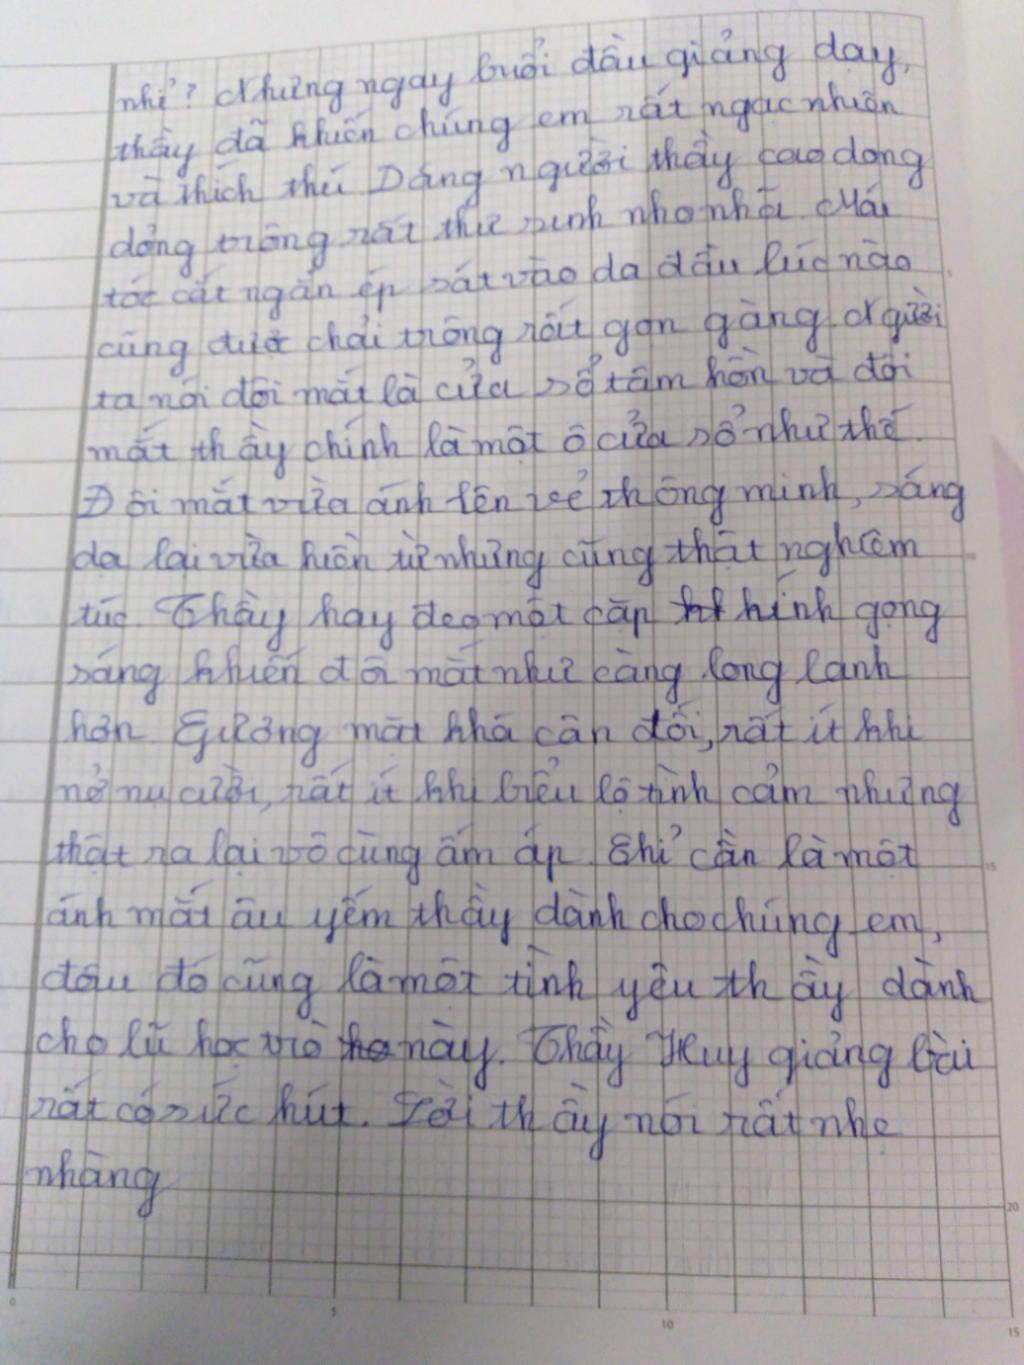 nhỉ? Nhưng ngay buổi đầu giảng dạy,
thầy đã khiến chúng em rất ngạc nhiên
và thích thú Dáng người thầy cao dong
dỏng trông rất thư sinh nho nhã. Mái
tóc cắt ngắn ép sát vào da đầu lúc nào
cũng được chải trông rất gọn gàng. Người
ta nói đôi mắt là cửa sổ tâm hồn và đôi
mắt thầy chính là một ô cửa sổ như thế.
Đôi mắt vừa ánh lên vẻ thông minh, sáng
dạ lại vừa hiền từ nhưng cũng thật nghiêm
túc. Thầy hay đeo một cặp kính gọng
sáng khiến đôi mắt như càng long lanh
hơn Gương mặt khá cân đối, rất ít khi
nở nụ cười, rất ít khi biểu lộ tình cảm nhưng
thật ra lại vô cùng ấm áp. Chỉ cần là một
ánh mắt âu yếm thầy dành cho chúng em,
đâu đó cũng là một tình yêu thầy dành
cho lũ học trò này. Thầy Huy giảng bài
rất có sức hút. Lời thầy nói rất nhẹ
nhàng
0
5
10
15
20
15